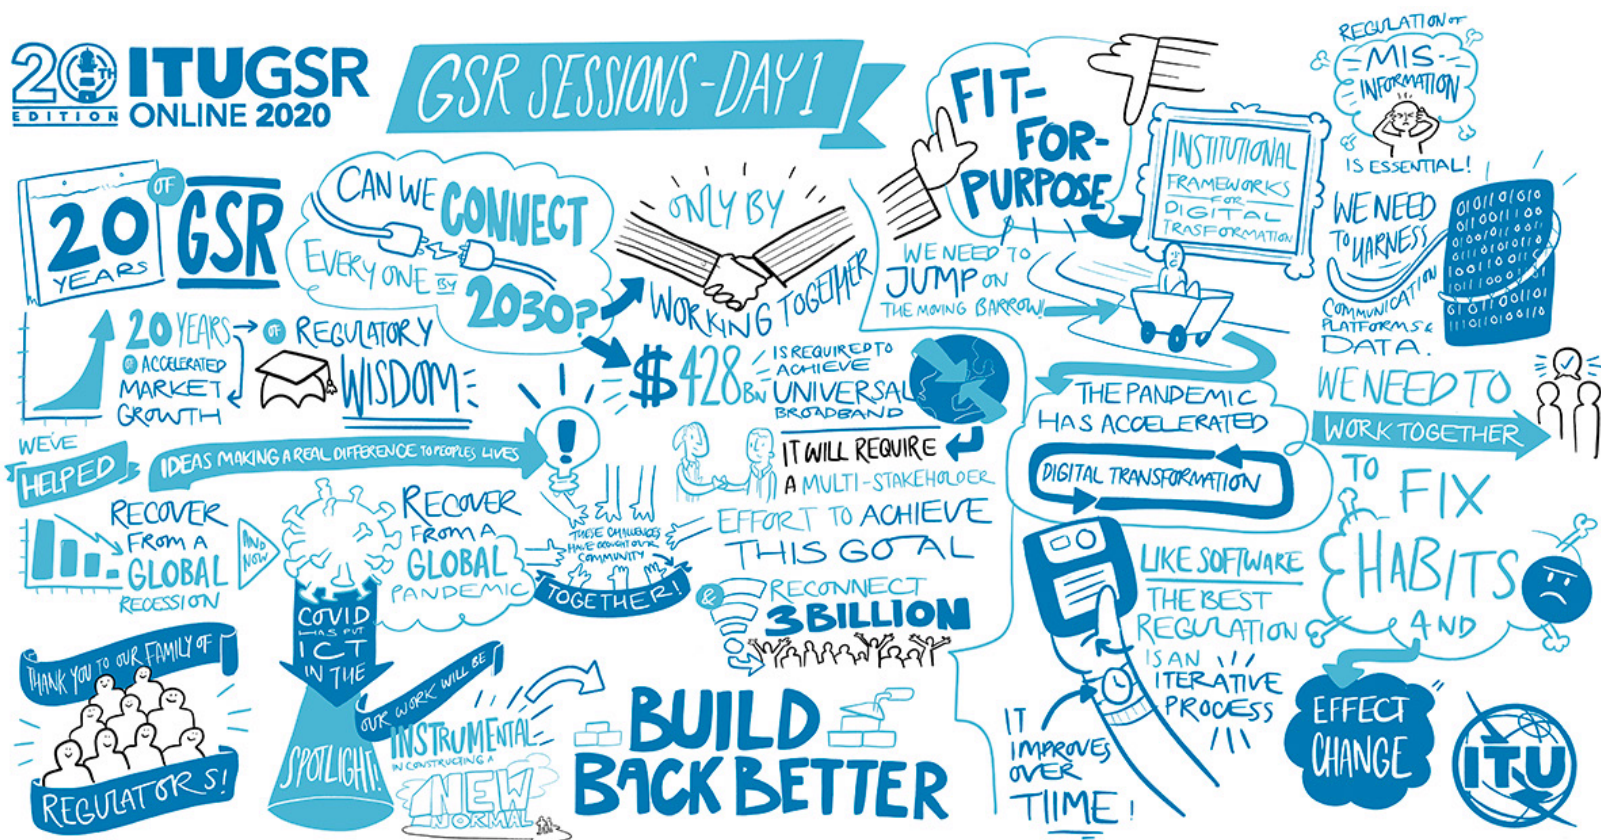 20TH EDITION
ITUGSR
ONLINE 2020
GSR SESSIONS - DAY 1
20 YEARS
OF
GSR
20 YEARS
OF ACCELERATED
MARKET
GROWTH
OF REGULATORY
WISDOM
CAN WE CONNECT
EVERYONE BY
2030?
ONLY BY
WORKING TOGETHER
$428BN
IS REQUIRED TO
ACHIEVE
UNIVERSAL
BROADBAND
IT WILL REQUIRE
A MULTI-STAKEHOLDER
EFFORT TO ACHIEVE
THIS GOAL
& RECONNECT
3 BILLION
WE'VE
HELPED
IDEAS MAKING A REAL DIFFERENCE TO PEOPLES LIVES
RECOVER
FROM A
GLOBAL
RECESSION
AND
NOW
RECOVER
FROM A
GLOBAL
PANDEMIC
THESE CHALLENGES
HAVE BROUGHT OUR
COMMUNITY
TOGETHER!
COVID
HAS PUT
ICT
IN THE
SPOTLIGHT!
THANK YOU TO OUR FAMILY OF
REGULATORS!
OUR WORK WILL BE
INSTRUMENTAL
IN CONSTRUCTING A
NEW
NORMAL
BUILD
BACK BETTER
FIT-
FOR-
PURPOSE
INSTITUTIONAL
FRAMEWORKS
FOR
DIGITAL
TRASFORMATION
WE NEED TO
JUMP ON
THE MOVING BARROW!
THE PANDEMIC
HAS ACCELERATED
DIGITAL TRANSFORMATION
LIKE SOFTWARE
THE BEST
REGULATION
IS AN
ITERATIVE
PROCESS
IT
IMPROVES
OVER
TIIME!
REGULATION OF
MIS-
INFORMATION
IS ESSENTIAL!
WE NEED
TO HARNESS
COMMUNICATION
PLATFORMS &
DATA.
WE NEED TO
WORK TOGETHER
TO FIX
HABITS
AND
EFFECT
CHANGE
ITU